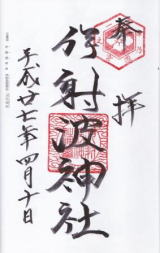 奉拝
伊射波神社
平成廿七年四月十日